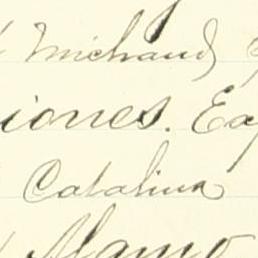 Michaud
iones. Ex
Catalina
Alamo